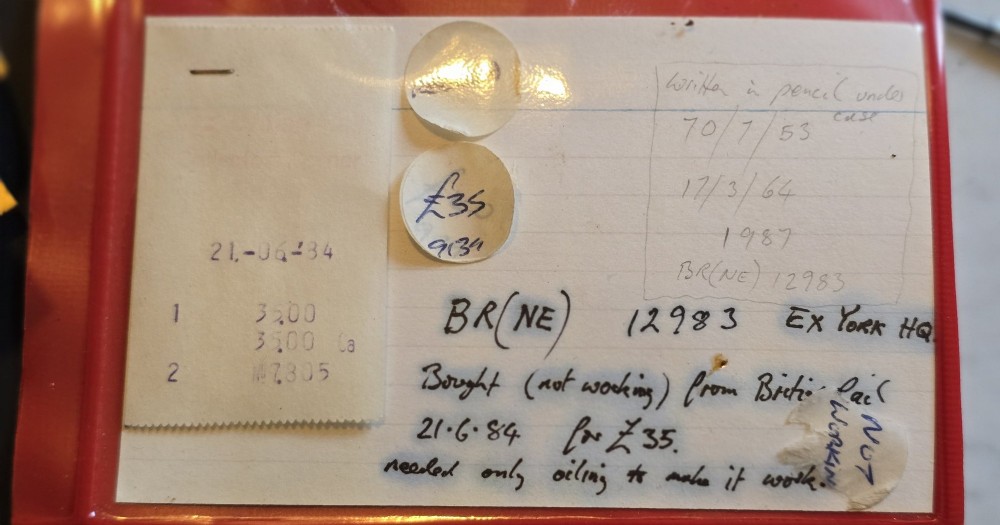 21.-06-84
1 35.00
35.00 Ca
2 №7305
£35
9134
Written in pencil under
case
70/7/53
17/3/64
1987
BR(NE) 12983
BR(NE) 12983 EX YORK HQ.
Bought (not working) from British Rail
21.6.84 for £35.
needed only oiling to make it work.
NOT
WORKING